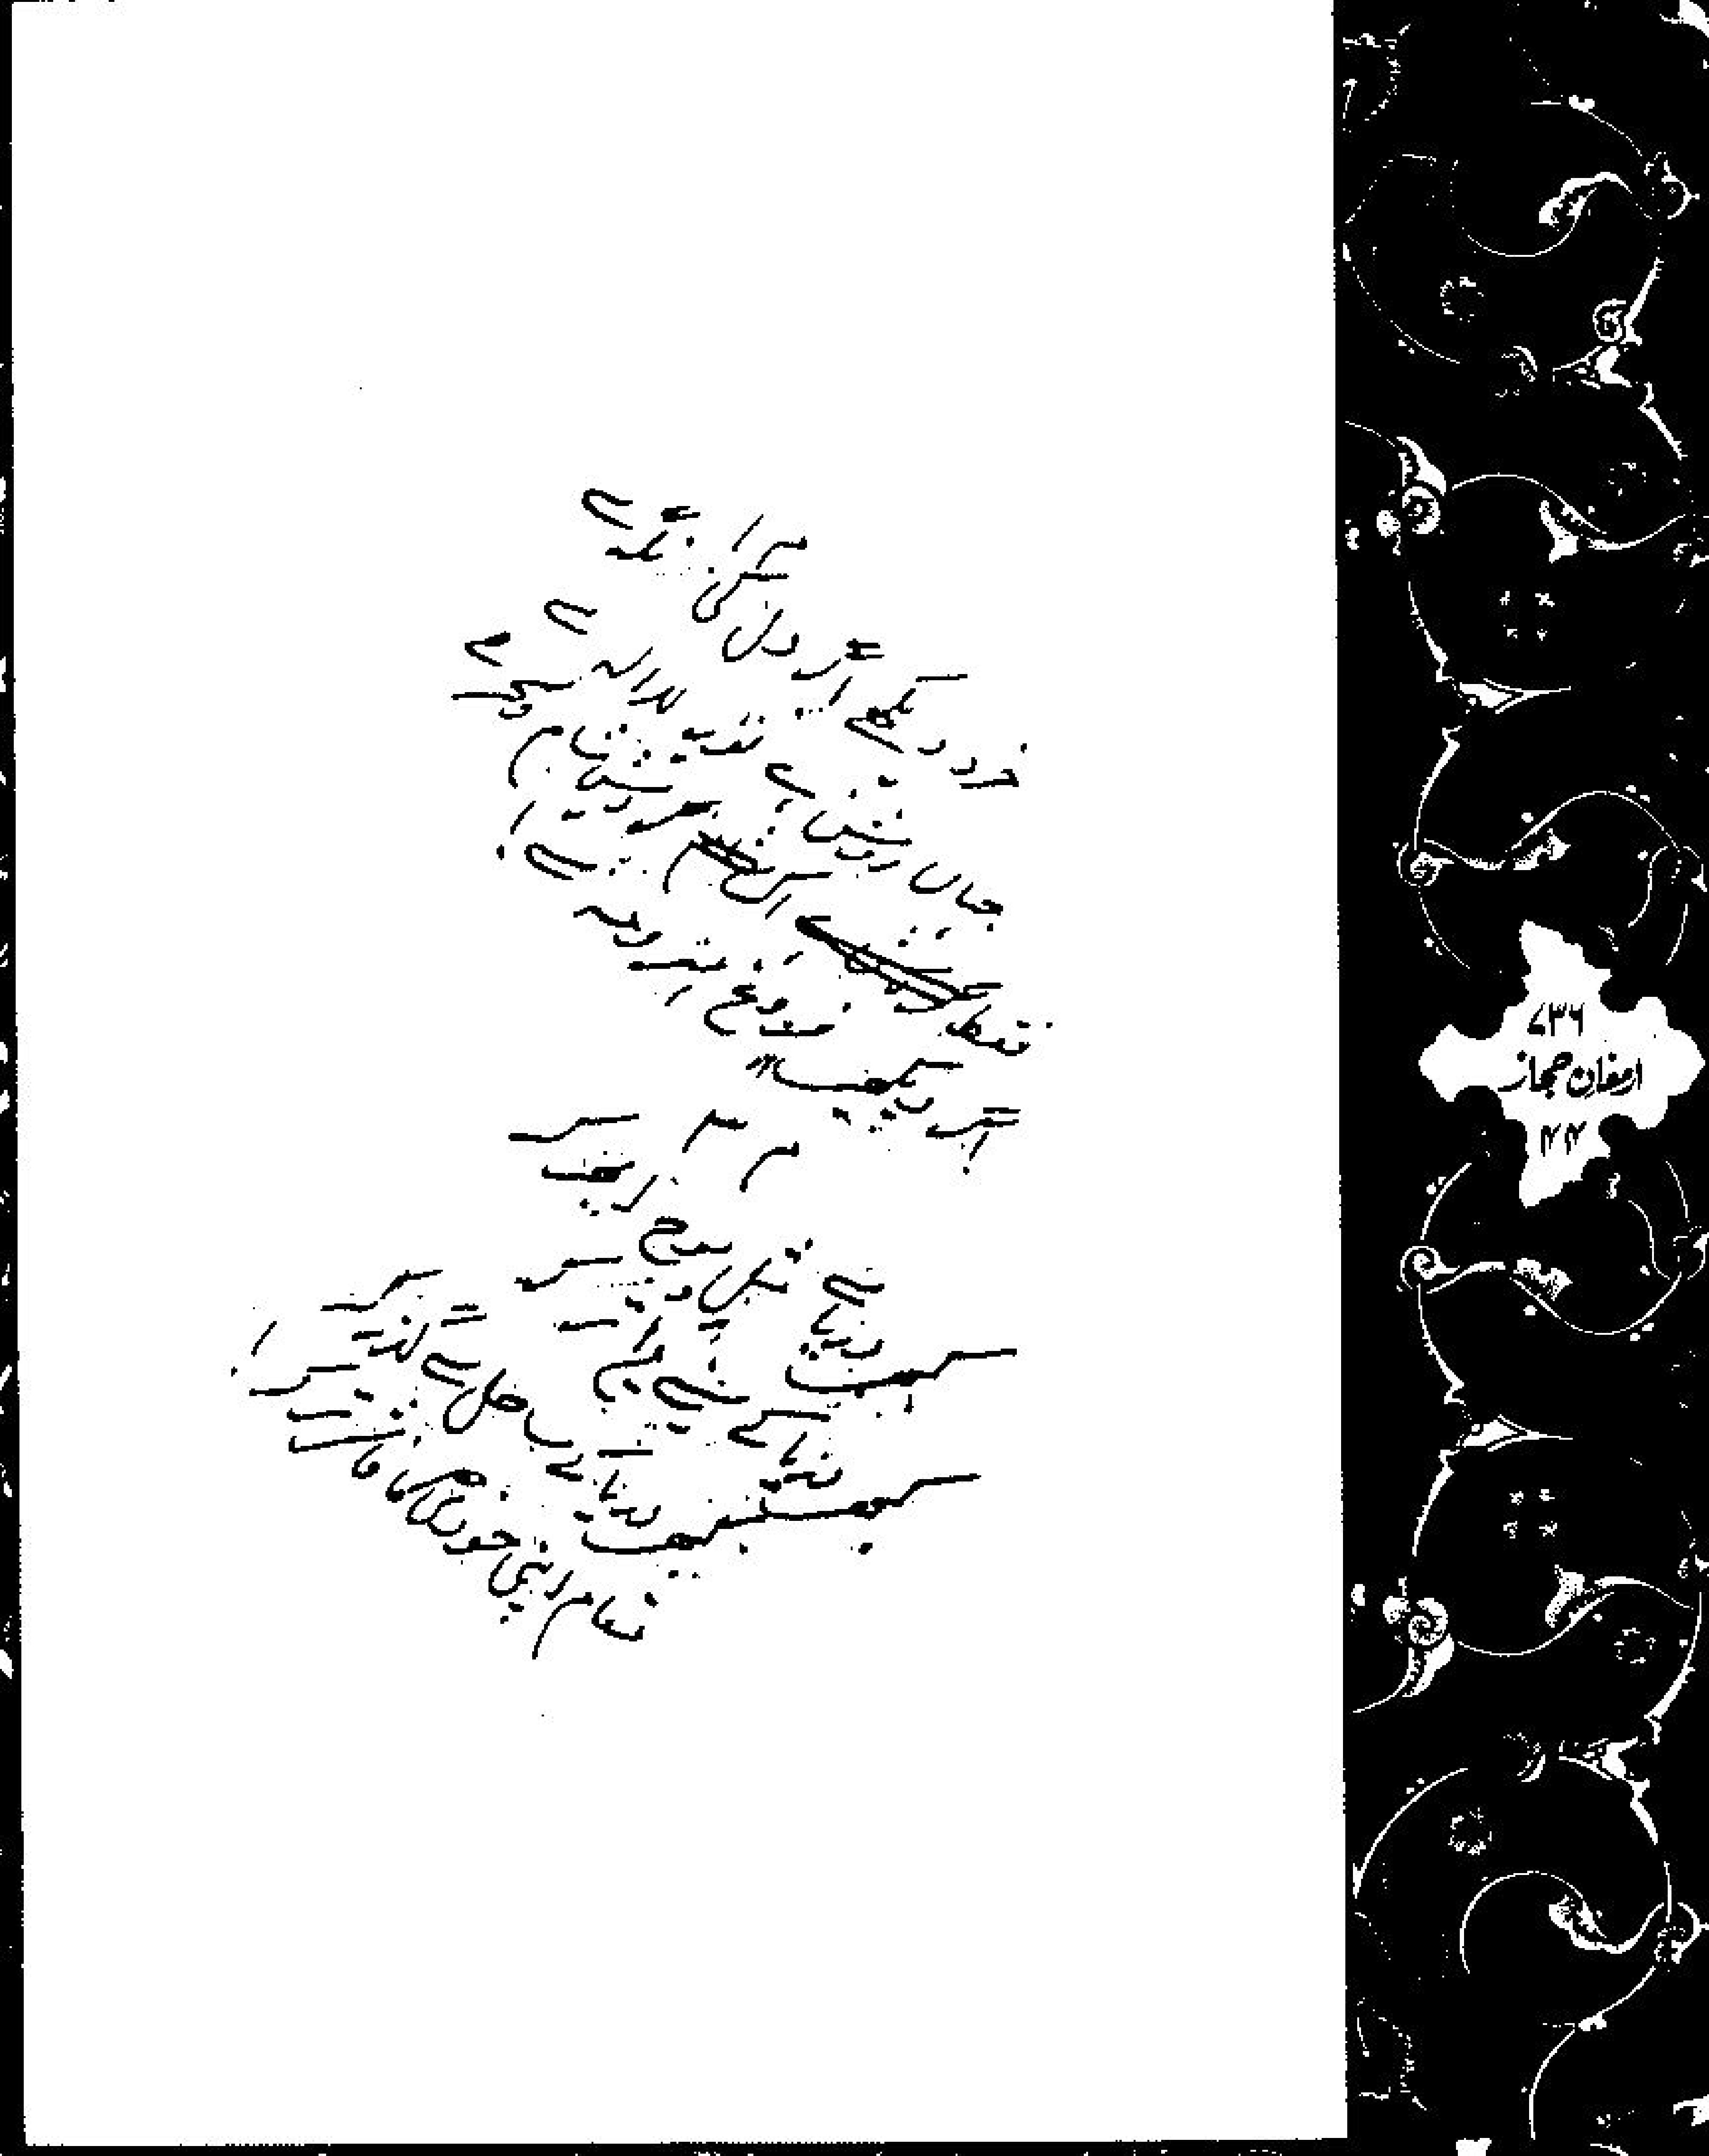 خرد دیکھے اگر دل کی نگہ سے
جہاں روشن ہے نور لا الہ سے
فقط اک گردش شام و سحر ہے
اگر دیکھیں فروغ مہر و مہ سے!
کبھی دریا سے مثل موج ابھر کر
کبھی دریا کے سینے میں اتر کر
کبھی دریا کے ساحل سے گذر کر
مقام اپنی خودی کا فاش تر کر!
۷۳۶
ارمغان حجاز
۴۴